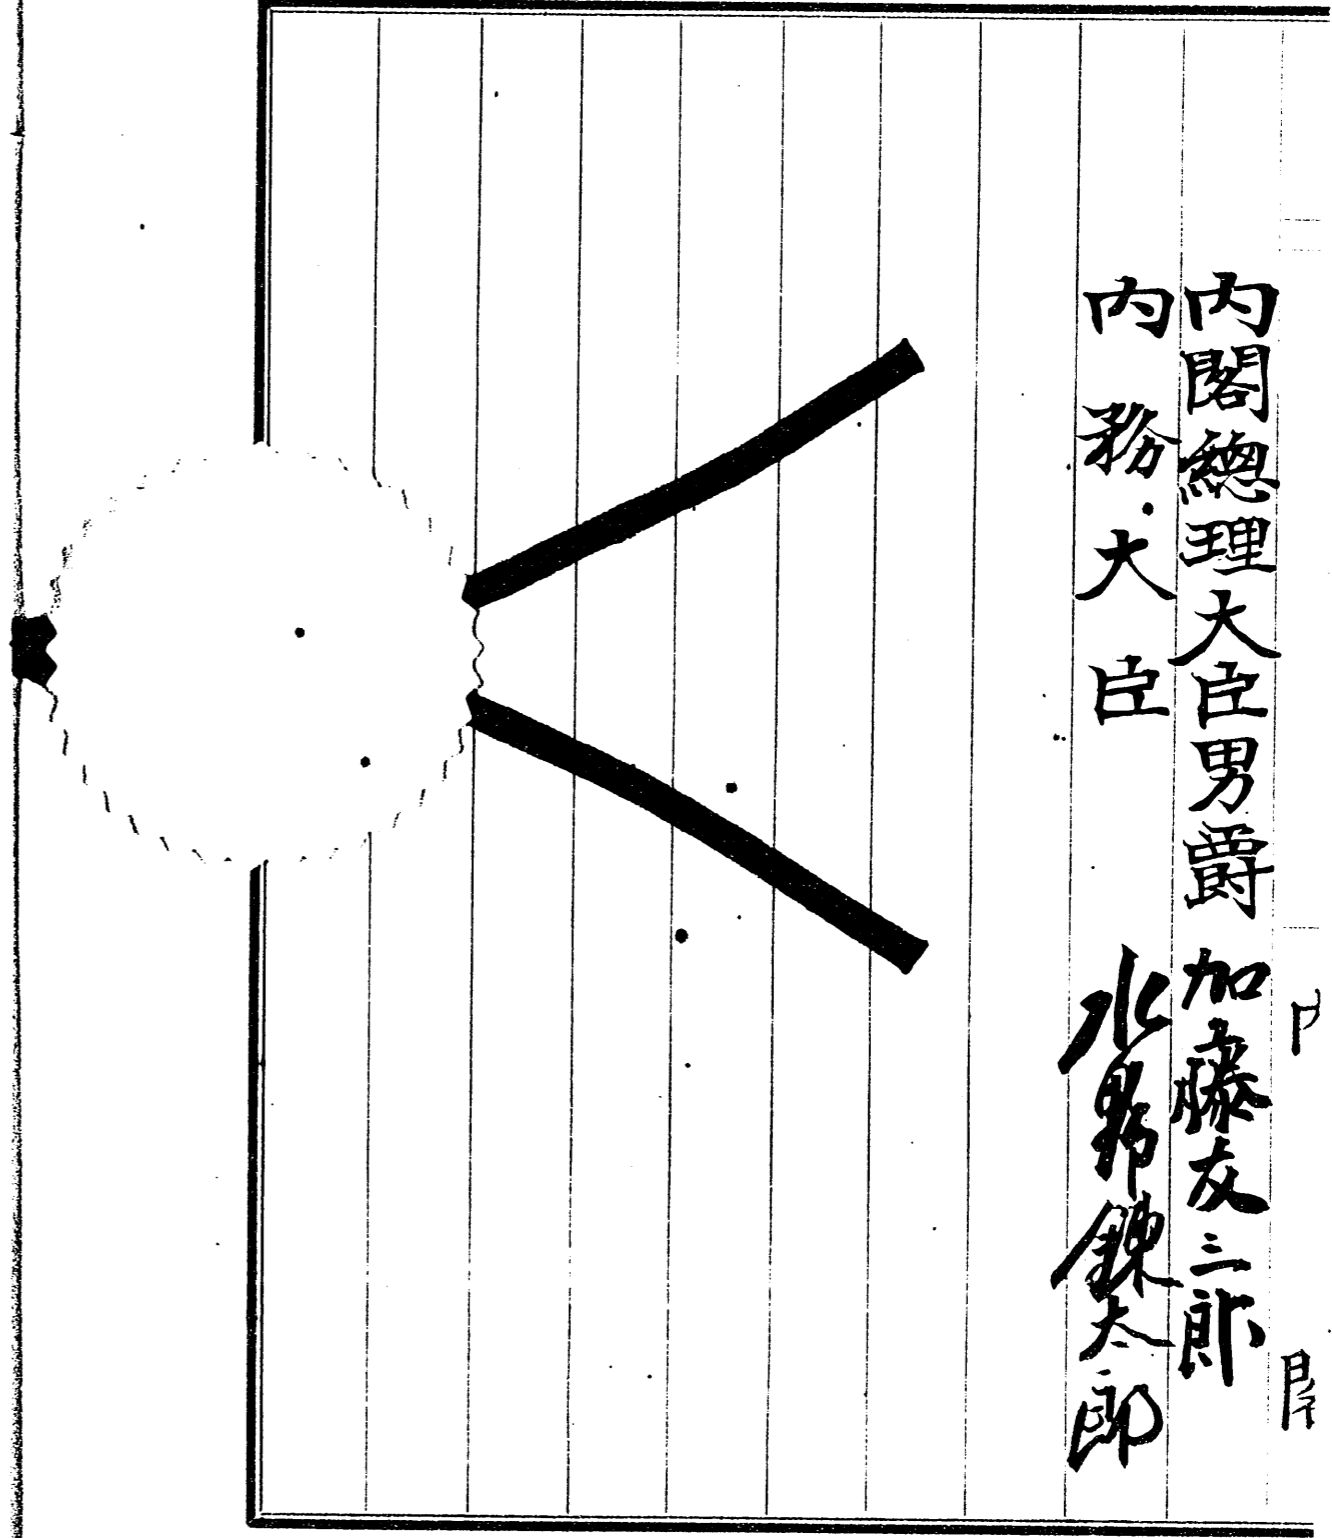 內閣總理大臣男爵 加藤友三郎
內務大臣 水野錬太郎